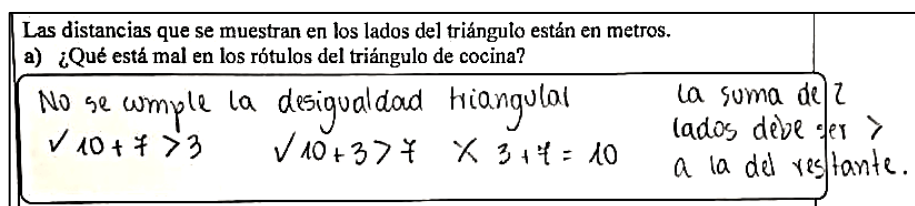 Las distancias que se muestran en los lados del triángulo están en metros.
a) ¿Qué está mal en los rótulos del triángulo de cocina?
No se cumple la desigualdad triangular
✓ 10 + 7 > 3 ✓ 10 + 3 > 7 X 3 + 7 = 10
la suma de 2
lados debe ser >
a la del restante.